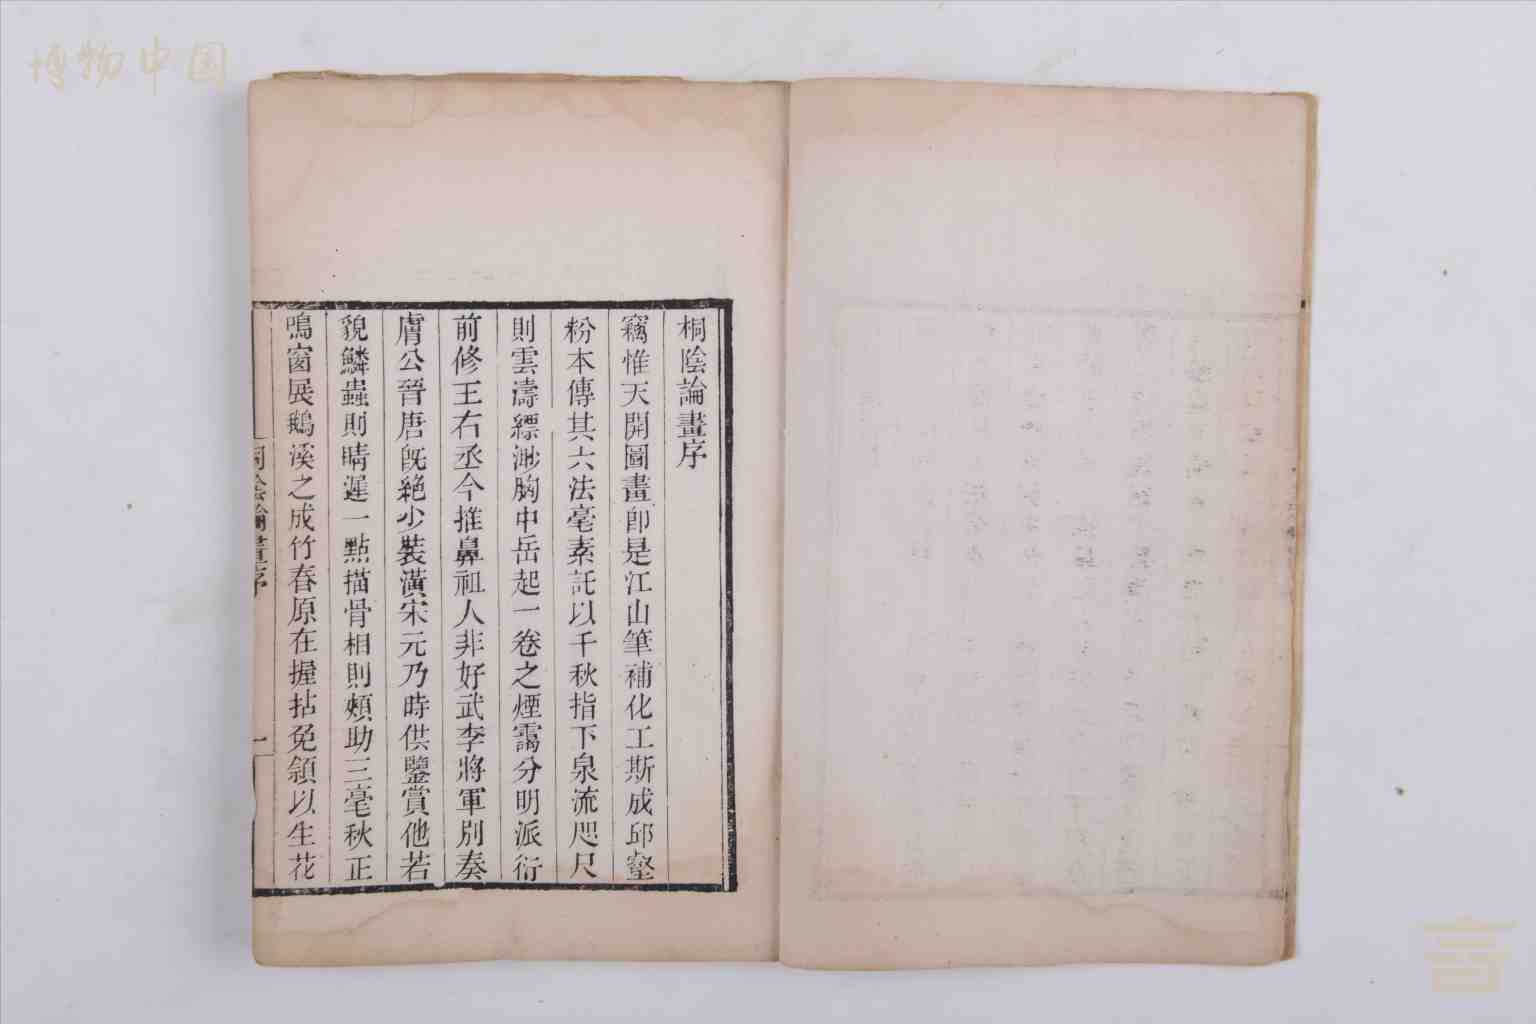 博物中国
桐陰論畫序
竊惟天開圖畫卽是江山筆補化工斯成邱壑
粉本傳其六法毫素託以千秋指下泉流咫尺
則雲濤縹渺胸中岳起一卷之煙靄分明派衍
前修王右丞今推鼻祖人非好武李將軍別奏
膚公晉唐旣絕少裝潢宋元乃時供鑒賞他若
貌鱗蟲則睛遲一點描骨相則頰助三毫秋正
鳴窗展鵝溪之成竹春原在握拈兔領以生花
桐陰論畫序 一